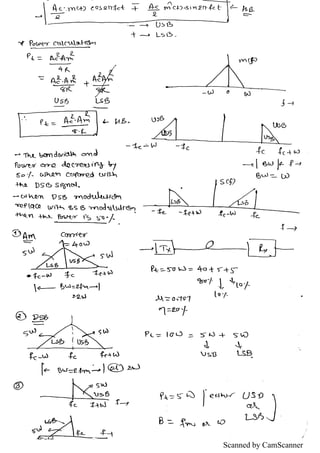 Ac/2 m(t) cos2πfct ∓ Ac/2 m̂(t) sin2πfct
- → USB
+ → LSB.
* Power calculation
Pt = Ac²Am²/4R
= Ac²Am²/8R + Ac²Am²/8R
USB LSB
∴ Pt = Ac².Am²/8R
m(f)
-W 0 W
f→
USB USB
-fc-W -fc fc fc+W
→| BW |← f→
BW = W
→ The bandwidth and
Power are decreasing by
50% when compared with
the DSB signal.
→ when DSB modulation
replace with SSB modulation
then the Power is 50%.
S(f)
LSB LSB
-fc -fc+W fc-W fc
f→
① Am
Carrier
= 40W
5W 5W
LSB USB
fc-W fc fc+W
|← BW=2fm →|
=2W
Tx Rx
Pt = 50W = 40+5+5
80% 10%
10%
μ = 0.707
η = 20%
② DSB
5W 5W
LSB USB
fc-W fc fc+W
|← BW=2fm →| (or) 2W
Pt = 10W = 5W + 5W
USB LSB
③
5W
USB
fc fc+W f→
LSB
5W
fc f→
Pt = 5W | either USB
or
LSB
B = fm or W
Scanned by CamScanner